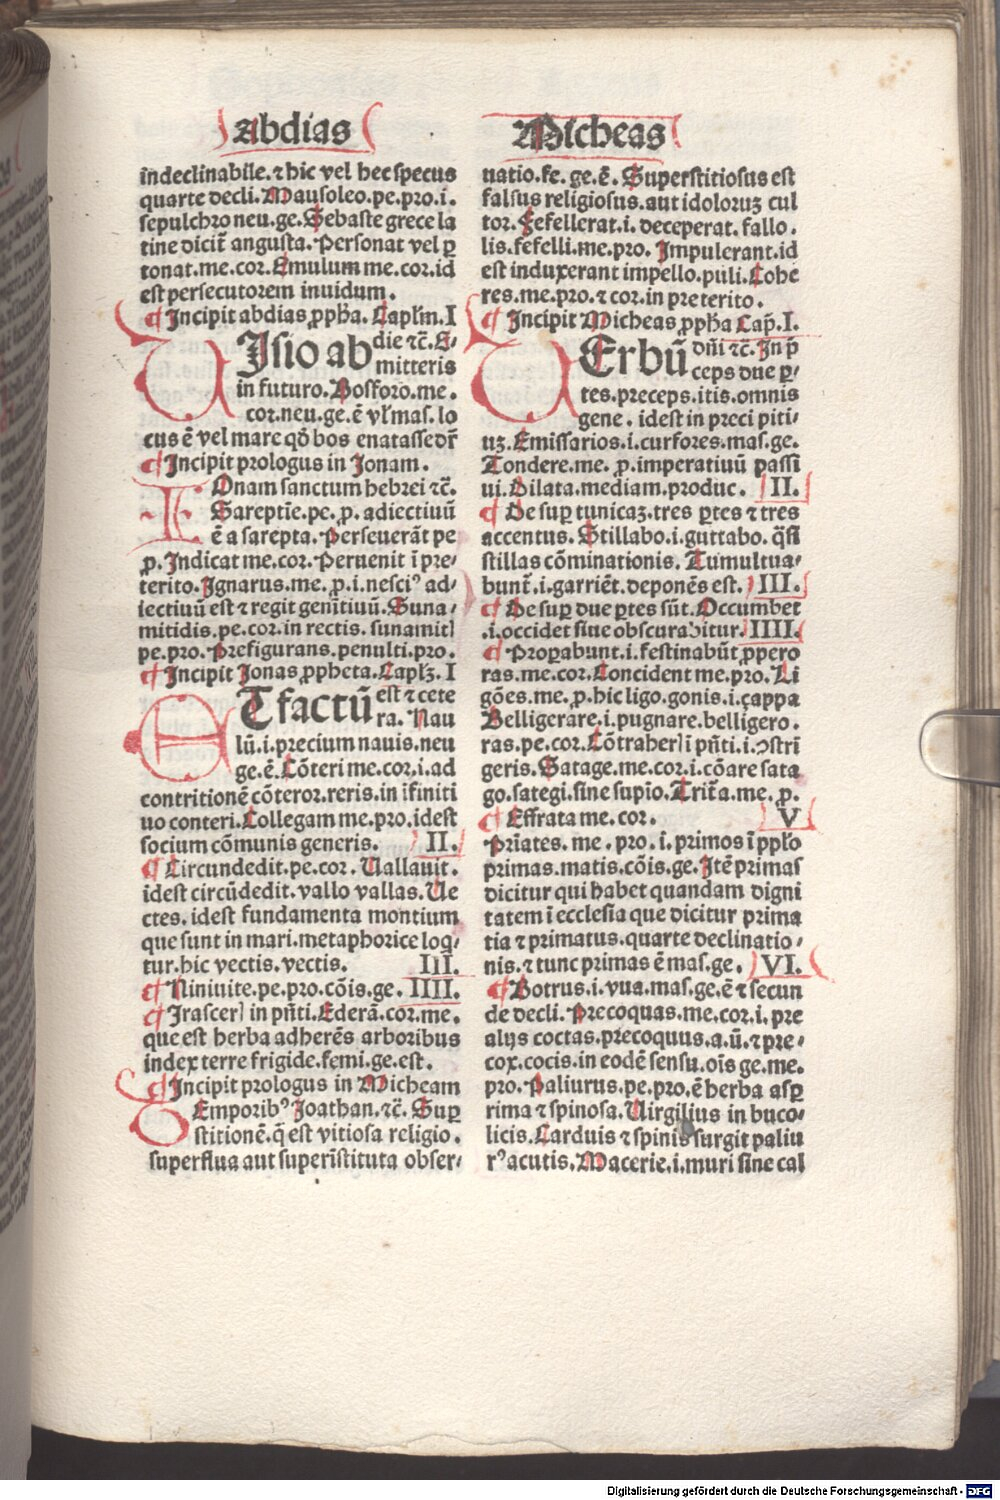 Abdias
indeclinabile.⁊ hic vel hec specus
quarte decli. Mausoleo.pe.pro.i.
sepulchro neu.ge. Sebaste grece la
tine dicit̃ angusta. Personat vel ꝑ
tonat.me.cor. Emulum me.cor.id
est persecutorem inuidum.
¶ Incipit abdias ꝓpħa. Capłm. I
VIsio ab die ⁊c̃. E-
mitteris
in futuro. Bosforo.me.
cor.neu.ge.ē vł mas. lo
cus ē vel mare qđ bos enatasse dr̃
¶ Incipit prologus in Jonam.
IOnam sanctum hebrei ⁊c̃.
Sareptie.pe.ꝓ. adiectiuū
ē a sarepta. Perseuerãt pe
ꝓ. Indicat me.cor. Peruenit ī pre-
terito. Ignarus.me.ꝓ.i.nesciꝰ ad-
iectiuū est ⁊ regit genitiuū. Suna-
mitidis.pe.cor.in rectis. sunamitꝭ
pe.pro. Prefigurans.penulti.pro.
¶ Incipit Jonas ꝓpheta. Capłꝫ. I
ET factū est ⁊ cete
ra. Nau
lū.i.precium nauis.neu
ge.ē. Cōteri me.cor.i.ad
contritionē cōteror.reris.in īfiniti
uo conteri. Collegam me.pro.idest
socium cōmunis generis. II.
¶ Circundedit.pe.cor. Uallauit.
idest circūdedit.vallo vallas. Ue
ctes. idest fundamenta montium
que sunt in mari.metaphorice loq-
tur.hic vectis.vectis. III.
¶ Niniuite.pe.pro.cōis.ge. IIII.
¶ Irascerꝭ in pn̄ti. Ederā.cor.me.
que est herba adherēs arboribus
index terre frigide.femi.ge.est.
¶ Incipit prologus in Micheam
TEmporibꝰ Joathan.⁊c̃. Suꝑ
stitionē.q̄ est vitiosa religio.
superflua aut superīstituta obser-
Micheas
uatio.fe.ge.ē. Superstitiosus est
falsus religiosus.aut idoloruꝫ cul
tor. Fefellerat.i.deceperat.fallo.
lis.fefelli.me.pro. Impulerant.id
est induxerant impello.puli. Cohe
res.me.pro.⁊ cor.in preterito.
¶ Incipit Micheas ꝓpħa Cap̄. I.
VErbū dn̄i ⁊c̃. In p̄
ceps due ꝑ-
tes.preceps.itis.omnis
gene. idest in preci piti-
uꝫ. Emissarios.i.cursores.mas.ge.
Tondere.me. ꝓ.imperatiuū passi
ui. Dilata.mediam.produc. II.
¶ De suꝑ tunicaꝫ.tres ꝑtes ⁊ tres
accentus. Stillabo.i.guttabo. q̄si
stillas cōminationis. Tumultua-
bunt̃.i.garriēt.deponēs est. III.
¶ De suꝑ due ꝑtes sūt. Occumbet
.i.occidet siue obscurabitur. IIII.
¶ Proꝑabunt.i.festinabūt ꝓpero
ras.me.cor. Concident me.pro. Li
gōes.me.ꝓ.hic ligo.gonis.i.çappa
Belligerare.i.pugnare.belligero.
ras.pe.cor. Cōtraherꝭ ī pn̄ti.i.ↄstrī
geris. Satage.me.cor.i.cōare sata
go.sategi.sine supio. Trit̃a.me. ꝓ.
¶ Effrata me. cor. V
Primates. me. pro. i. primos ī ppło
primas.matis.cōis.ge. Itē primas
dicitur qui habet quandam digni
tatem ī ecclesia que dicitur prima
tia ⁊ primatus.quarte declinatio-
nis.⁊ tunc primas ē mas.ge. VI.
¶ Botrus.i.vua.mas.ge.ē ⁊ secun
de decli. Precoquas.me.cor.i. pre
alijs coctas.precoquus.a.ū.⁊ pre-
cox.cocis.in eodē sensu.oīs ge.me.
pro. Paliurus.pe.pro.ē herba asꝑ
rima ⁊ spinosa. Virgilius in buco-
licis. Carduis ⁊ spinis surgit paliu
rꝰ acutis. Macerie.i.muri sine cal
Digitalisierung gefördert durch die Deutsche Forschungsgemeinschaft - DFG